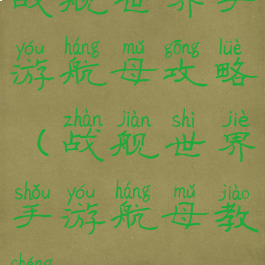 战舰世界手
yóu háng mǔ gōng lüè
游航母攻略
zhàn jiàn shì jiè
（战舰世界
shǒu yóu háng mǔ jiào
手游航母教
chéng